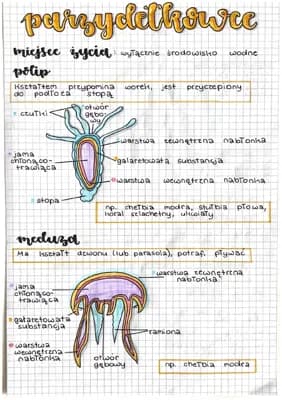 parzydełkowce
miejsce życia: wyłącznie środowisko wodne
polip
Kształtem przypomina worek, jest przyczepiony
do podłoża stopą
czułki
otwór
gębo-
wy
warstwa zewnętrzna nabłonka
jama
chłonąco-
trawiąca
galaretowata substancja
warstwa wewnętrzna nabłonka
stopa
np. chełbia modra, stułbia płowa,
koral szlachetny, ukwiały
meduza
Ma kształt dzwonu (lub parasola), potrafi pływać
warstwa zewnętrzna
nabłonka
jama
chłonąco-
trawiąca
galaretowata
substancja
ramiona
warstwa
wewnętrzna
nabłonka
otwór
gębowy
np. chełbia modra